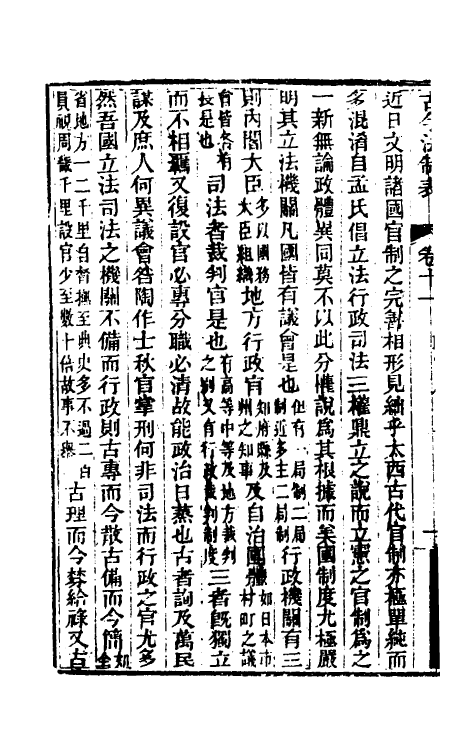 古今法制表 卷十一
近日文明諸國官制之完善相形見絀乎太西古代官制亦極單純而
多混淆自孟氏倡立法行政司法三權鼎立之說而立憲之官制爲之
一新無論政體異同莫不以此分權說爲其根據而美國制度尤極嚴
明其立法機關凡國皆有議會是也但有一局制二局制近多主二局制行政機關有三
則內閣大臣多以國務大臣組織地方行政官如府縣及州之知事及自治團體如日本市村町之議
會皆各有長是也司法者裁判官是也有高等中等及地方裁判之別又有行政裁判制度三者旣獨立
而不相羈又復設官必專分職必清故能政治日蒸也古者詢及萬民
謀及庶人何異議會咎陶作士秋官掌刑何非司法而行政之官尤多
然吾國立法司法之機關不備而行政則古專而今散古備而今簡如全
省地方一二千里自督撫至典史多不過二百員視周畿千里設官少至數十倍故事不舉古理而今棼給祿又古